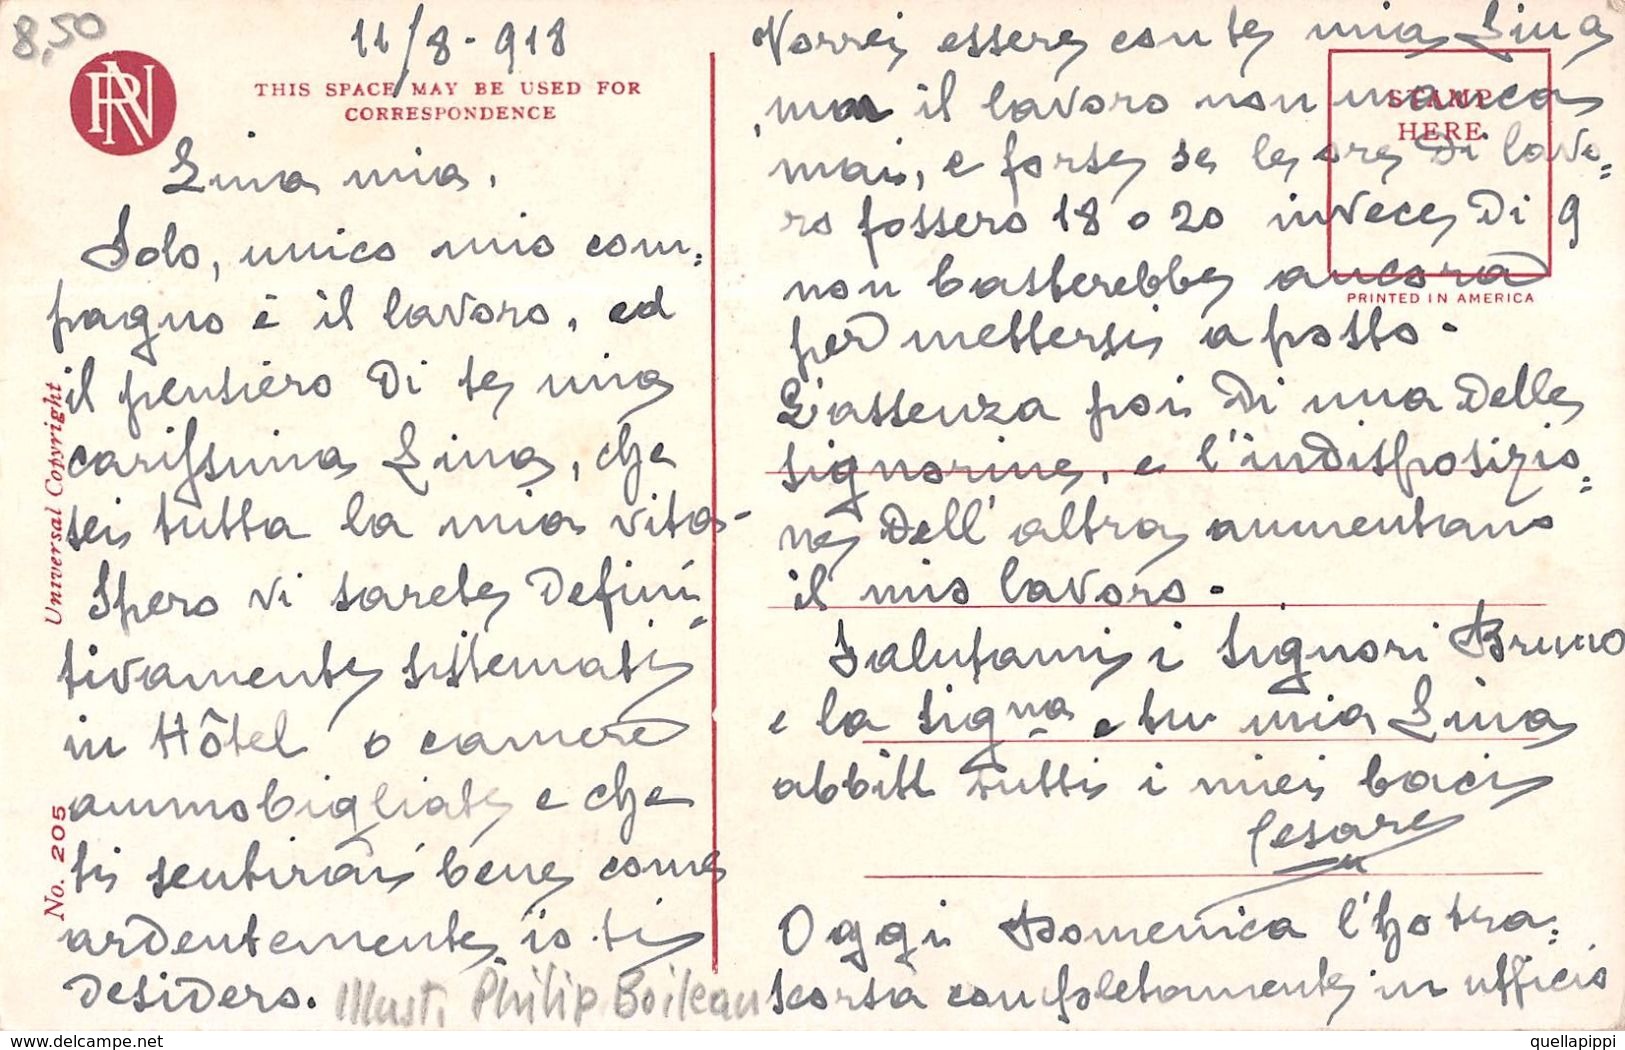 8,50
11/8-918
RN
THIS SPACE MAY BE USED FOR
CORRESPONDENCE
Lina mia,
Solo, unico mio com=
pagno è il lavoro, ed
il pensiero di te mia
carissima Lina, che
sei tutta la mia vita-
Spero vi sarete defini=
tivamente sistemati
in Hôtel o camere
ammobigliate e che
ti sentirai bene come
ardentemente io ti
desidero.
Illust. Philip Boileau
Universal Copyright
No. 205
Vorrei essere con te mia Lina
ma il lavoro non manca
mai, e forse se le ore di lavo=
ro fossero 18 o 20 invece di 9
non basterebbe ancora
per mettersi a posto-
L'assenza poi di una delle
signorine, e l'indisposizio=
ne dell'altra aumentano
il mio lavoro-
Salutami i signori Bruno
e la sig.na e tu mia Lina
abbiti tutti i miei baci
Cesare
Oggi Domenica l'ho tra=
scorsa completamente in ufficio
STAMP
HERE
PRINTED IN AMERICA
www.delcampe.net
quellapippi